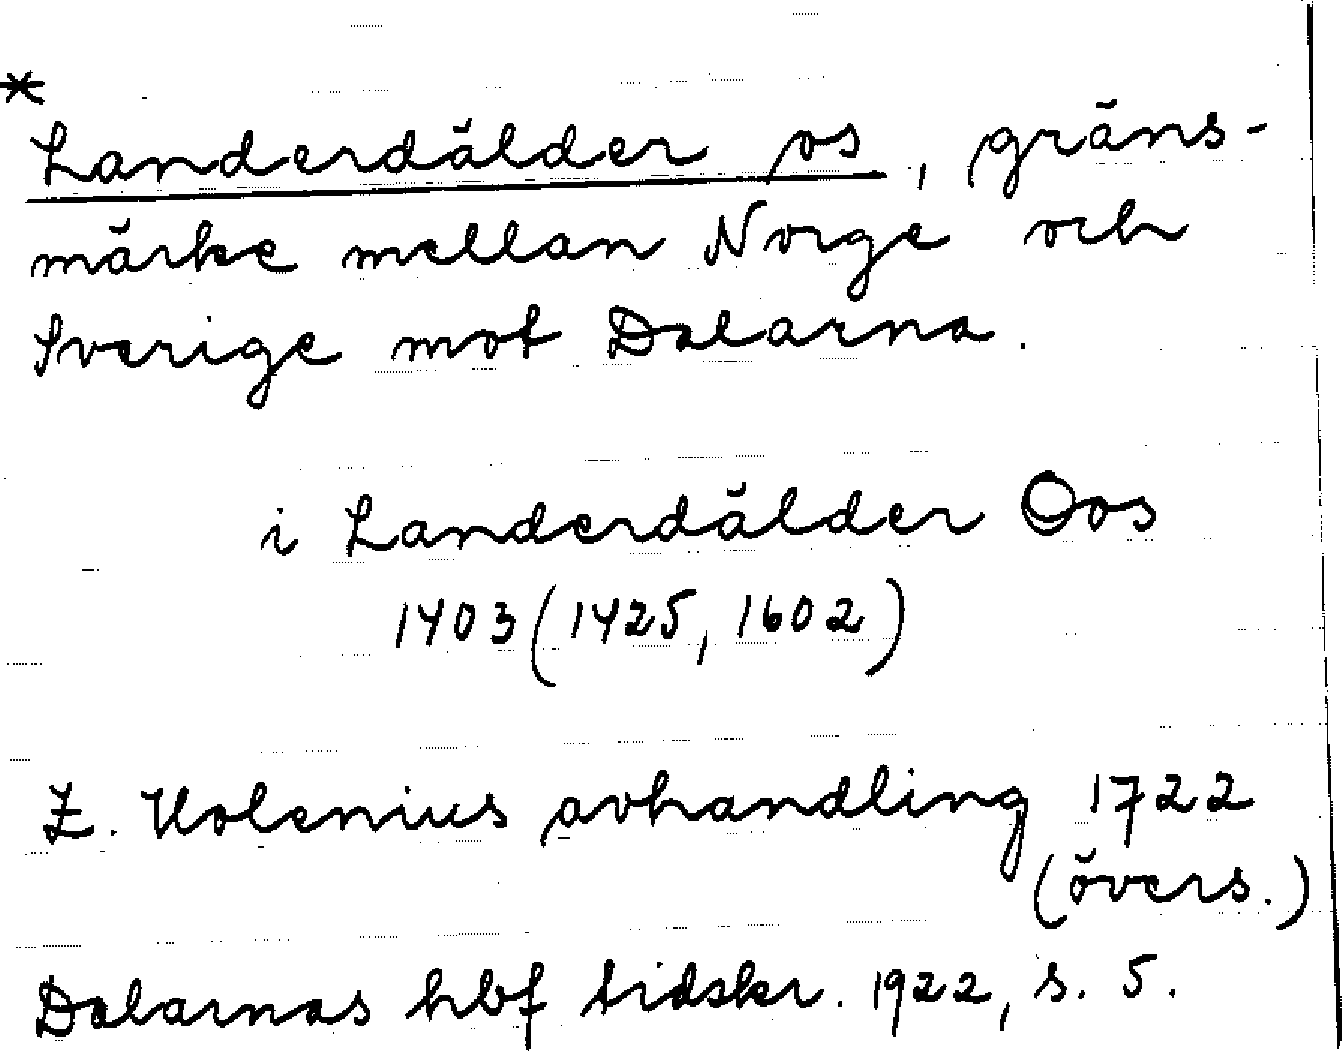 *
Landerdälder os, gräns-
märke mellan Norge och
Sverige mot Dalarna.
i Landerdälder Oos
1403 (1425, 1602)
Z. Holenius avhandling 1722
(övers.)
Dalarnas hbf tidskr. 1922, s. 5.